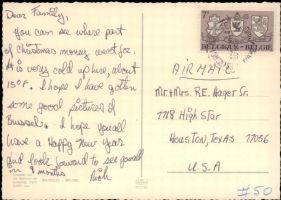 Dear Family,
you can see where part
of Christmas money went for.
It is very cold up here, about
15°F. I hope I have gotten
some good pictures of
Brussel. I hope you all
have a Happy New Year
and look forward to see you all
in 8 months
Rich
7F
BELGIQUE-BELGIE
AIR MAIL
Mr + Mrs. R.E. Hager Sr.
7718 High Star
Houston, Texas 77056
U.S.A
#50